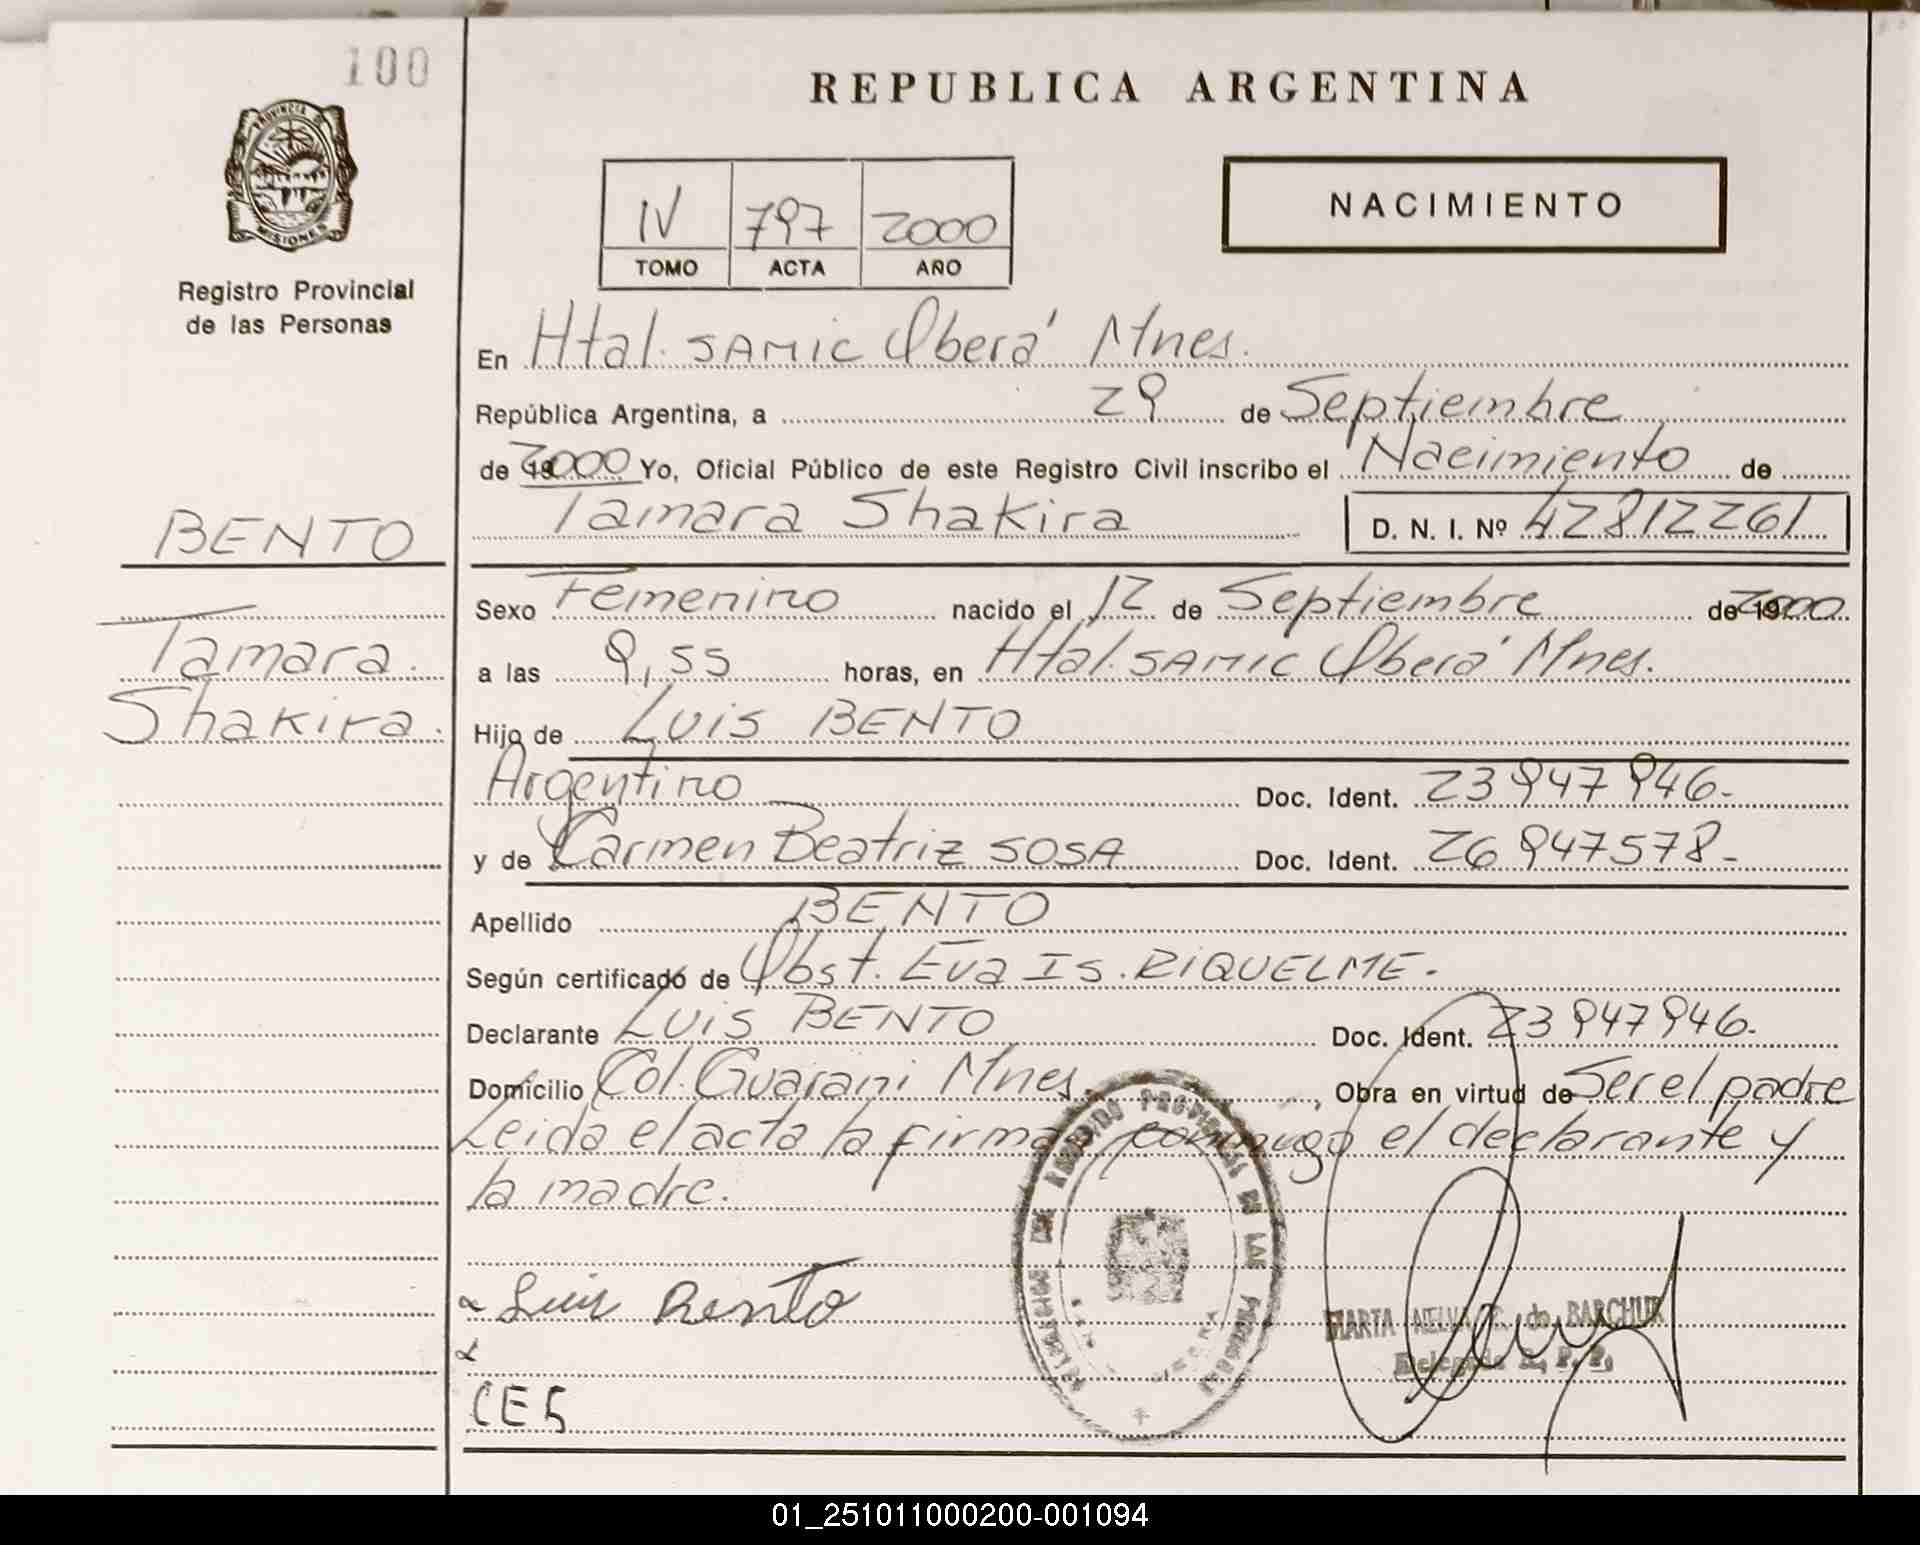 100
REPUBLICA ARGENTINA
PROVINCIA DE
MISIONES
Registro Provincial
de las Personas
IV 797 2000
TOMO ACTA AÑO
NACIMIENTO
En Htal. SAMIC Oberá Mnes.
República Argentina, a 29 de Septiembre
de 192000 Yo, Oficial Público de este Registro Civil inscribo el Nacimiento de
Tamara Shakira D. N. I. Nº 42812261
BENTO
Tamara
Shakira.
Sexo Femenino nacido el 12 de Septiembre de 192000
a las 9,55 horas, en Htal. SAMIC Oberá Mnes.
Hijo de Luis BENTO
Argentino Doc. Ident. 23 947 946.-
y de Carmen Beatriz SOSA Doc. Ident. 26 947578-
Apellido BENTO
Según certificado de Obst. Eva Is. RIQUELME.
Declarante Luis BENTO Doc. Ident. 23 947 946.
Domicilio Col. Guarani Mnes. , Obra en virtud de Ser el padre
Leida el acta la firman conmigo el declarante y
la madre.
Luis Bento
PROVINCIAL DE LAS
MARTA NELVA de BARCHUK
Delegada R. P. P.
CE5
01_251011000200-001094